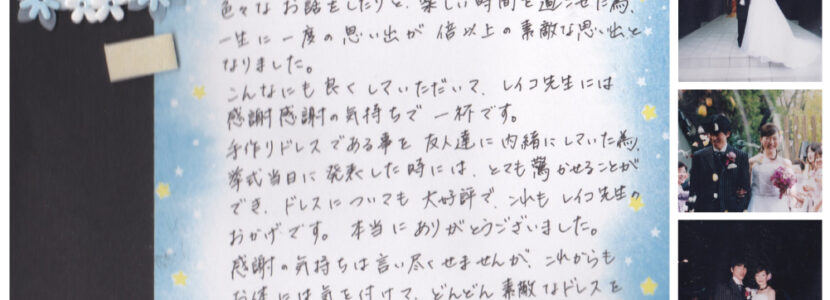 色々なお話をしたりと、楽しい時間を過ごせた為、
一生に一度の思い出が倍以上の素敵な思い出と
なりました。
こんなにも良くしていただいて、レイコ先生には
感謝感謝の気持ちで一杯です。
手作りドレスである事を友人達に内緒にしていた為、
挙式当日に発表した時には、とても驚かせることが
でき、ドレスについても大好評で、これもレイコ先生の
おかげです。本当にありがとうございました。
感謝の気持ちは言い尽くせませんが、これからも
お体には気を付けて、どんどん素敵なドレスを